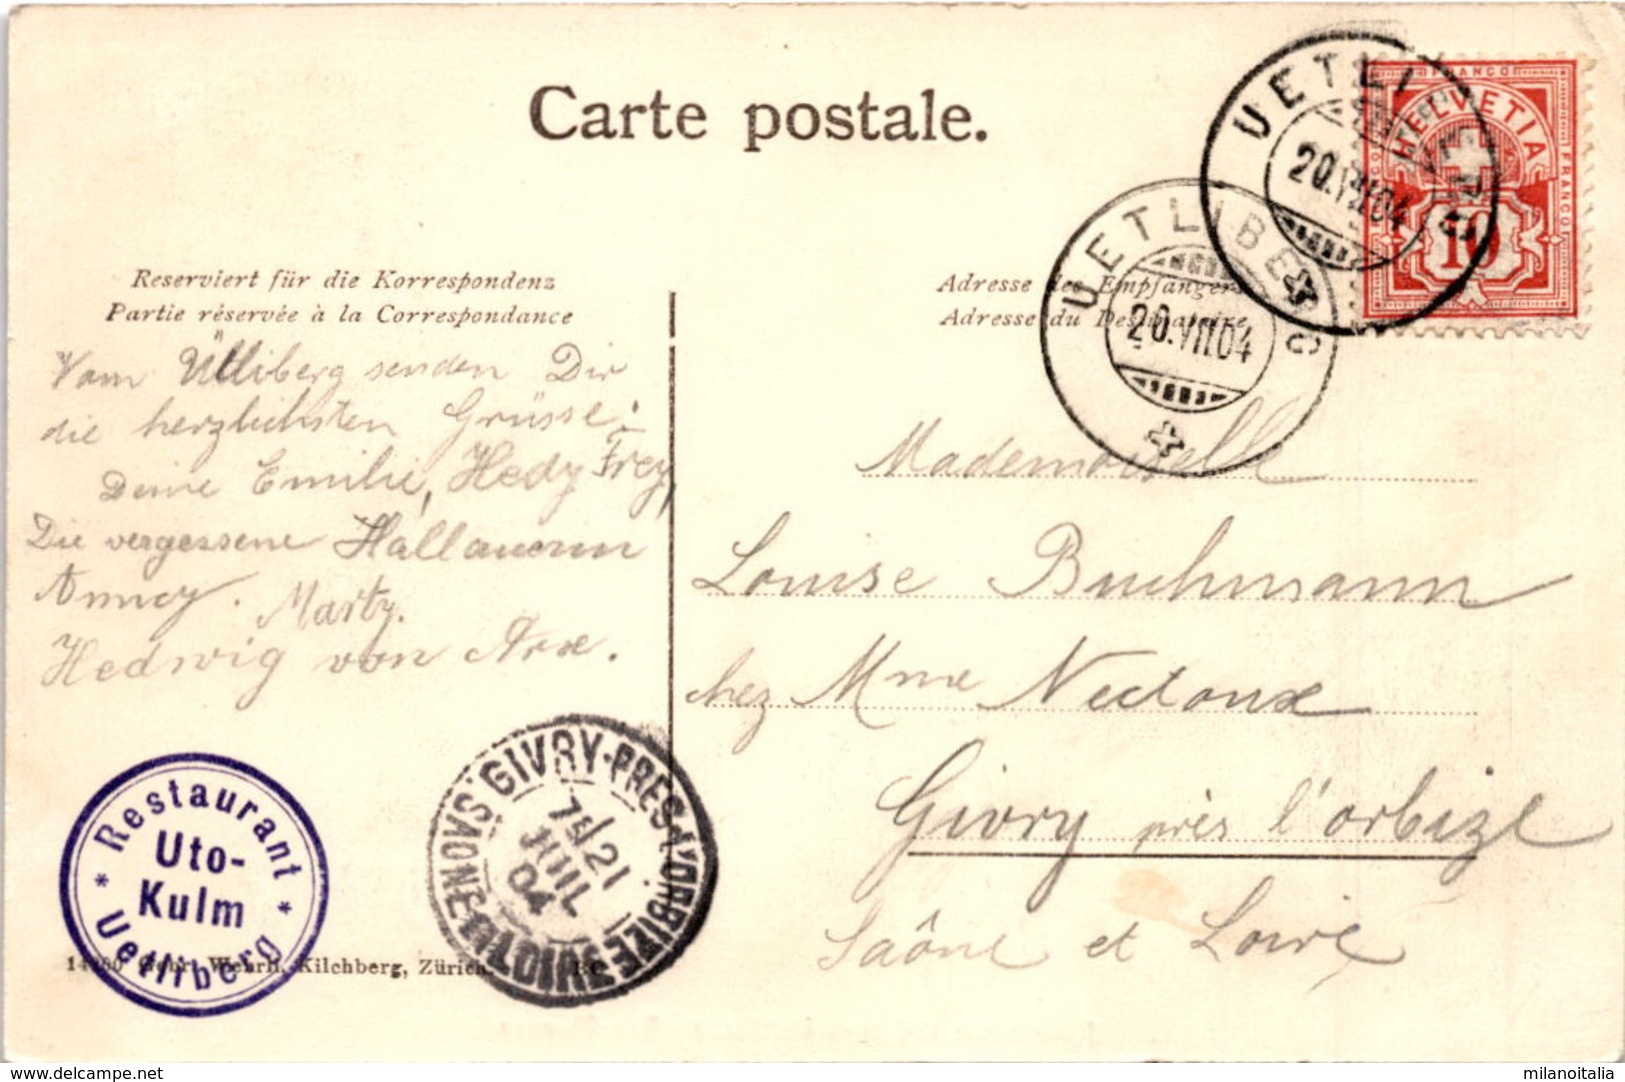 Carte postale.
UETLIBERG
20.VII.04
UETLIBERG
20.VII.04
FRANCO
HELVETIA
FRANCO
10
Reserviert für die Korrespondenz
Partie réservée à la Correspondance
Adresse des Empfängers
Adresse du Destinataire
Vom Ütliberg senden Dir
die herzlichsten Grüsse:
Deine Emilie, Hedy Frey,
Die vergessene Hallauerin
Annney. Marty.
Hedwig von Arx.
Mademoiselle
Louise Buchmann
chez Mme Nectoux
Givry près l'orbize
Saône et Loire
Restaurant
Uto-
Kulm
Uetliberg
GIVRY-PRES-L'ORBIZE
21
JUIL
04
SAONE-ET-LOIRE
Gebr. Wehrli, Kilchberg, Zürich.
delcampe.net
milanoitalia